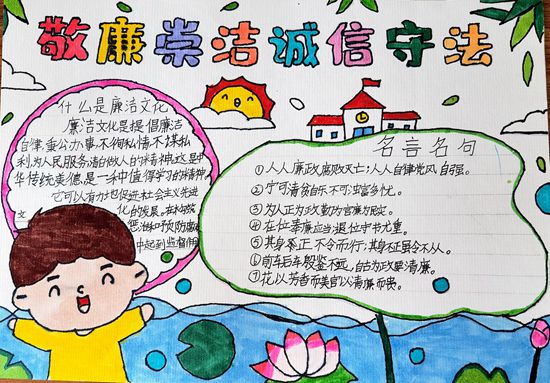 敬廉崇洁诚信守法
什么是廉洁文化
廉洁文化是提倡廉洁
自律,秉公办事,不徇私情,不谋私
利,为人民服务
华传统美德,是一种值得学习的精神
它可以有力地促进社会主义先进
文化的发展。在
惩治和预防腐
中起到
名言名句
①人人廉政腐败灭亡;人人自律党风自强。
②宁可清贫自乐不可浊富多忧。
③为人正为政勤为官廉为民
④在位奉廉应当,退位守节尤重。
⑤其身正,不令而行;其身不正,虽令不从。
⑥前车后车殷鉴不远,自古为政贵清廉。
⑦花以芳香而美,官以清廉而贵。